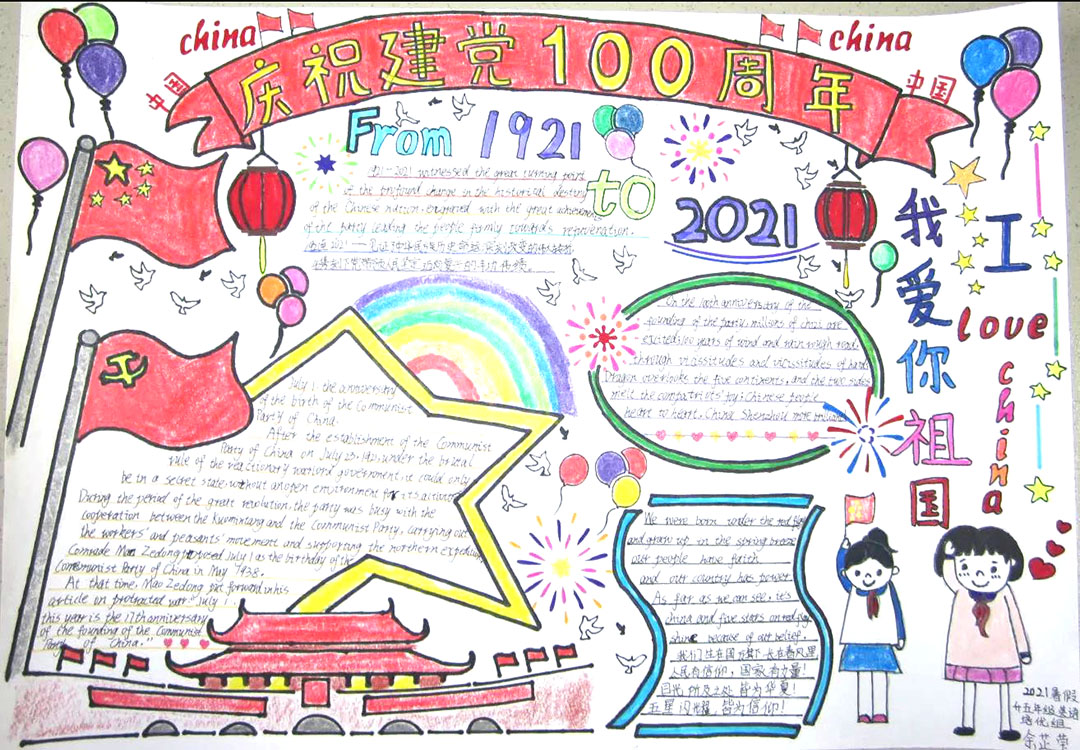 china
china
中国
中国
庆祝建党100周年
From 1921
to
2021
1921-2021 witnessed the great turning point
of the profound change in the historical destiny
of the Chinese nation, engraved with the great achievement
of the party leading the people family towards rejuvenation.
On the 100th anniversary of the
founding of the party, millions of
excited; 100 years of wind and rain, rough road
through vicissitudes and vicissitudes of
overlooks the five continents, and the two sides
melt the compatriots
heart to heart, China Shenzhou more
我爱你祖国
I
love
china
July 1, the anniversary
of the birth of the Communist
Party of China.
After the establishment of the Communist
Party of China on July 23, 1921, under the brutal
rule of the reactionary warlord government, it could only
be in a secret state, without an open environment for its activities
During the period of the great revolution, the party was busy with the
cooperation between the Kuomintang and the Communist Party, carrying out
the workers' and peasants' movement and supporting the northern expedition
Comrade Mao Zedong proposed July 1 as the birthday of the
Communist Party of China in May 1938.
At that time, Mao Zedong put forward in his
article on protracted war "July 1,
this year is the 17th anniversary
of the founding of the Communist
Party of China."
We were born under the red flag
and grow up in the spring breeze
our people have faith
and our country has power
As far as we can see, it's
china and five stars on red flag
shine because of our belief.
我们生在国旗下 长在春风里
人民有信仰，国家有力量！
目光所及之处 皆为华夏！
五星闪耀，皆为信仰！
2021暑假
培优组